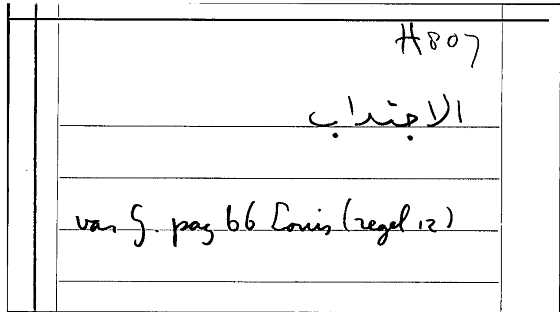 H807
الاجتذاب
van G. pag 66 Louis (regel 12)